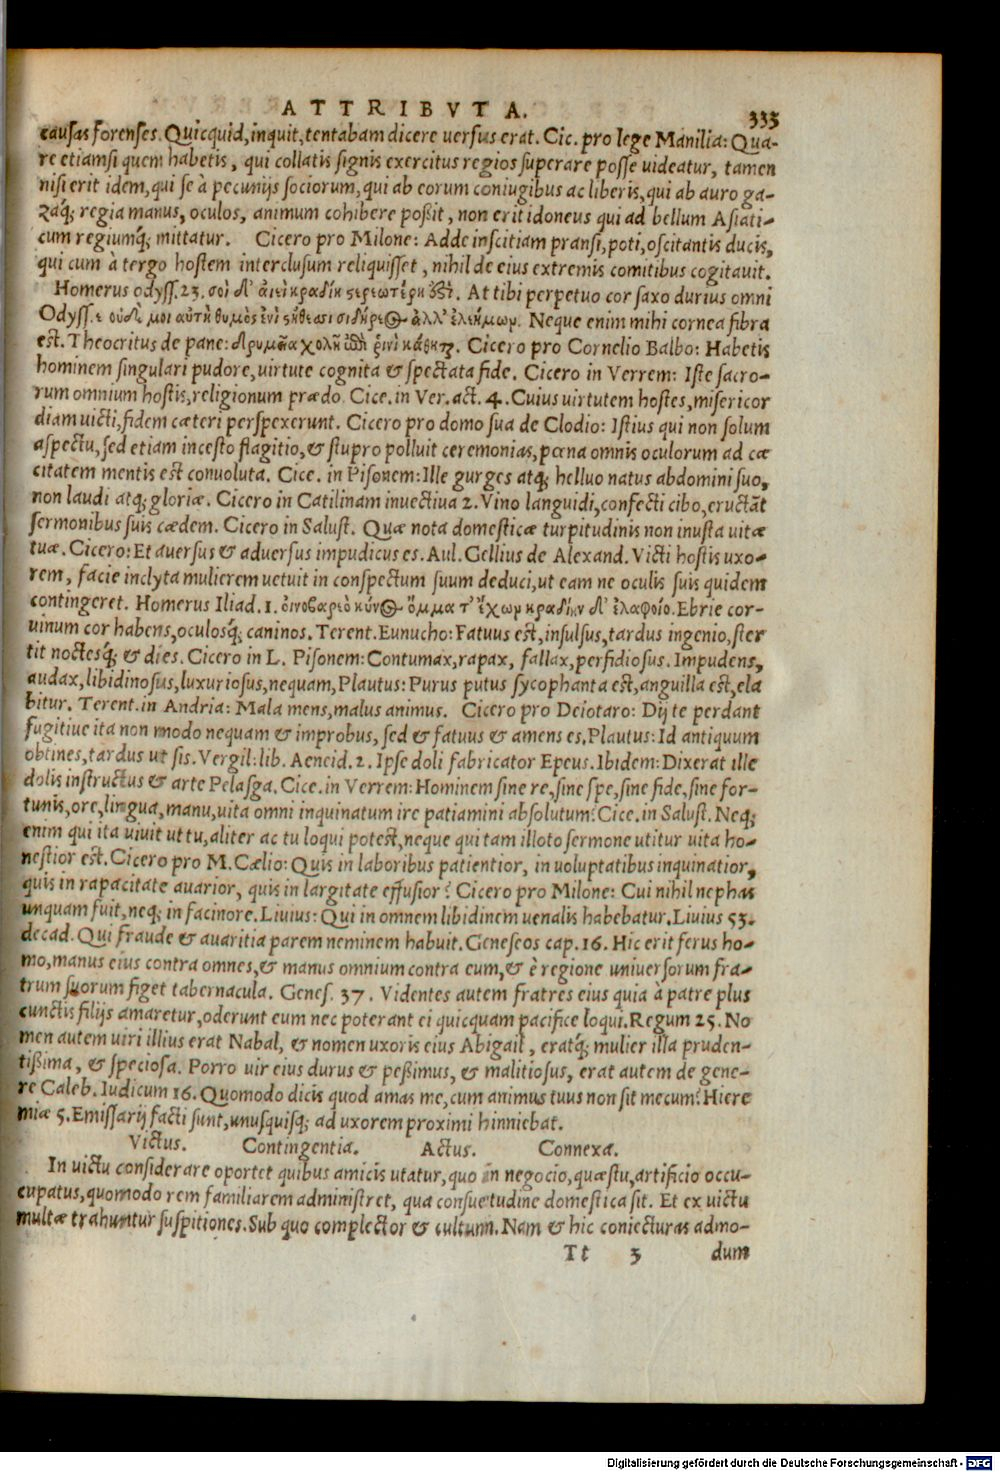 ATTRIBVTA. 333
causas forenses. Quicquid, inquit, tentabam dicere uersus erat. Cic. pro lege Manilia: Qua-
re etiamsi quem habetis, qui collatis signis exercitus regios superare posse uideatur, tamen
nisi erit idem, qui se à pecunijs sociorum, qui ab eorum coniugibus ac liberis, qui ab auro ga-
zaq́; regia manus, oculos, animum cohibere poßit, non erit idoneus qui ad bellum Asiati-
cum regiumq́; mittatur. Cicero pro Milone: Adde inscitiam pransi, poti, oscitantis ducis,
qui cum à tergo hostem interclusum reliquisset, nihil de eius extremis comitibus cogitauit.
Homerus odyss. 23. σοὶ δ' αἰεὶ κραδίη στερεωτέρη ἐστὶ. At tibi perpetuo cor saxo durius omni
Odyss. ε οὐδέ μοι αὐτῇ θυμὸς ἐνὶ στήθεσσι σιδήρεος ἀλλ' ἐλεήμων. Neque enim mihi cornea fibra
est. Theocritus de pane: δριμεῖα χολὴ ποτὶ ῥινὶ κάθηται. Cicero pro Cornelio Balbo: Habetis
hominem singulari pudore, uirtute cognita & spectata fide. Cicero in Verrem: Iste sacro-
rum omnium hostis, religionum prædo. Cice. in Ver. act. 4. Cuius uirtutem hostes, misericor
diam uicti, fidem cæteri perspexerunt. Cicero pro domo sua de Clodio: Istius qui non solum
aspectu, sed etiam incesto flagitio, & stupro polluit ceremonias, pœna omnis oculorum ad cæ
citatem mentis est conuoluta. Cice. in Pisonem: Ille gurges atq; helluo natus abdomini suo,
non laudi atq; gloriæ. Cicero in Catilinam inuectiua 2. Vino languidi, confecti cibo, eructāt
sermonibus suis cædem. Cicero in Salust. Quæ nota domesticæ turpitudinis non inusta uitæ
tuæ. Cicero: Et auersus & aduersus impudicus es. Aul. Gellius de Alexand. Victi hostis uxo-
rem, facie inclyta mulierem uetuit in conspectum suum deduci, ut eam ne oculis suis quidem
contingeret. Homerus Iliad. 1. οἰνοβαρὲς κύνος ὄμματ' ἔχων κραδίην δ' ἐλάφοιο. Ebrie cor-
uinum cor habens, oculosq́; caninos. Terent. Eunucho: Fatuus est, insulsus, tardus ingenio, ster
tit noctesq́; & dies. Cicero in L. Pisonem: Contumax, rapax, fallax, perfidiosus. Impudens,
audax, libidinosus, luxuriosus, nequam, Plautus: Purus putus sycophanta est, anguilla est, ela
bitur. Terent. in Andria: Mala mens, malus animus. Cicero pro Deiotaro: Dij te perdant
fugitiue ita non modo nequam & improbus, sed & fatuus & amens es. Plautus: Id antiquum
obtines, tardus ut sis. Vergil: lib. Aeneid. 2. Ipse doli fabricator Epeus. Ibidem: Dixerat ille
dolis instructus & arte Pelasga. Cice. in Verrem: Hominem sine re, sine spe, sine fide, sine for-
tunis, ore, lingua, manu, uita omni inquinatum ire patiamini absolutum? Cice. in Salust. Neq;
enim qui ita uiuit ut tu, aliter ac tu loqui potest, neque qui tam illoto sermone utitur uita ho-
nestior est. Cicero pro M. Cælio: Quis in laboribus patientior, in uoluptatibus inquinatior,
quis in rapacitate auarior, quis in largitate effusior? Cicero pro Milone: Cui nihil nephas
unquam fuit, neq; in facinore. Liuius: Qui in omnem libidinem uenalis habebatur. Liuius 53.
decad. Qui fraude & auaritia parem neminem habuit. Geneseos cap. 16. Hic erit ferus ho-
mo, manus eius contra omnes, & manus omnium contra eum, & è regione uniuersorum fra-
trum suorum figet tabernacula. Genes. 37. Videntes autem fratres eius quia à patre plus
cunctis filijs amaretur, oderunt eum nec poterant ei quicquam pacifice loqui. Regum 25. No
men autem uiri illius erat Nabal, & nomen uxoris eius Abigail, eratq́; mulier illa pruden-
tißima, & speciosa. Porro uir eius durus & peßimus, & malitiosus, erat autem de gene-
re Caleb. Iudicum 16. Quomodo dicis quod amas me, cum animus tuus non sit mecum? Hiere
miæ 5. Emissarij facti sunt, unusquisq; ad uxorem proximi hinniebat.
Victus. Contingentia. Actus. Connexa.
In uictu considerare oportet quibus amicis utatur, quo in negocio, quæstu, artificio occu-
cupatus, quomodo rem familiarem administret, qua consuetudine domestica sit. Et ex uictu
multæ trahuntur suspitiones. Sub quo complector & cultum. Nam & hic coniecturas admo-
Tt 3 dum
Digitalisierung gefördert durch die Deutsche Forschungsgemeinschaft - DFG